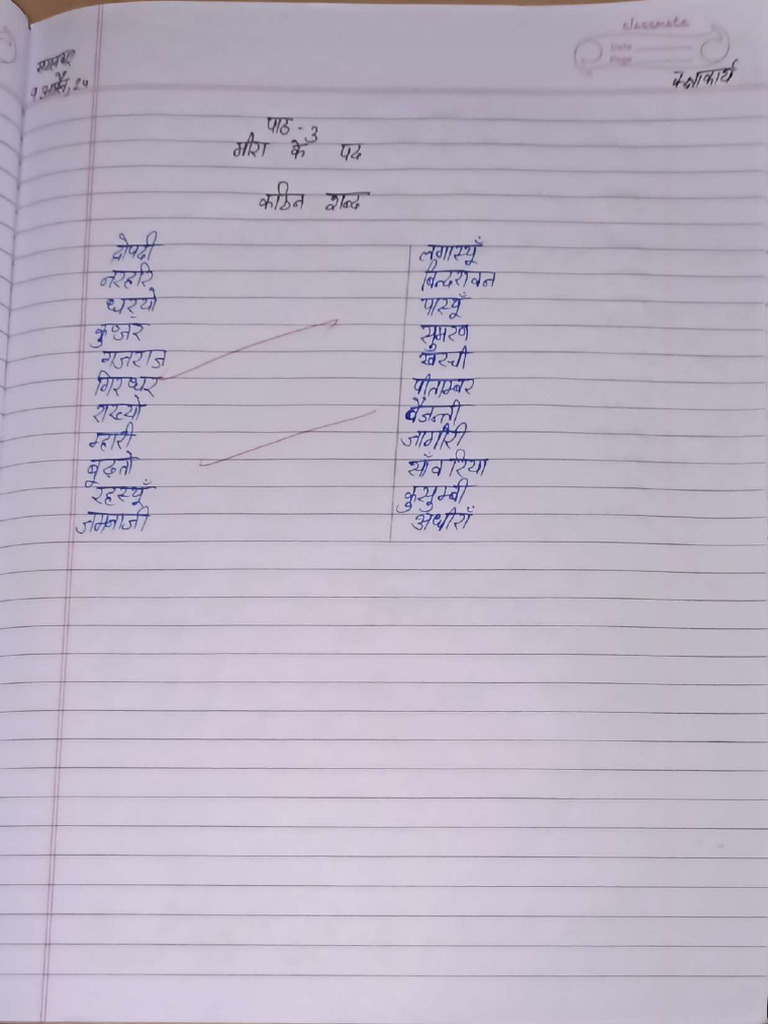 classmate
Date
Page
मंगलवार
9 अप्रैल, 24
कक्षाकार्य
पाठ - 3
मीरा के पद
कठिन शब्द
द्रोपदी
नरहरि
धर्‌यो
कुञ्जर
गजराज
गिरधर
राख्यो
म्हारी
बूढ़तो
रहस्यूँ
जमनाजी
लगास्यूँ
बिन्दरावन
पास्यूँ
सुमरण
खरची
पीताम्बर
वैजन्ती
जागीरी
साँवरिया
कुसुम्बी
अधीराँ